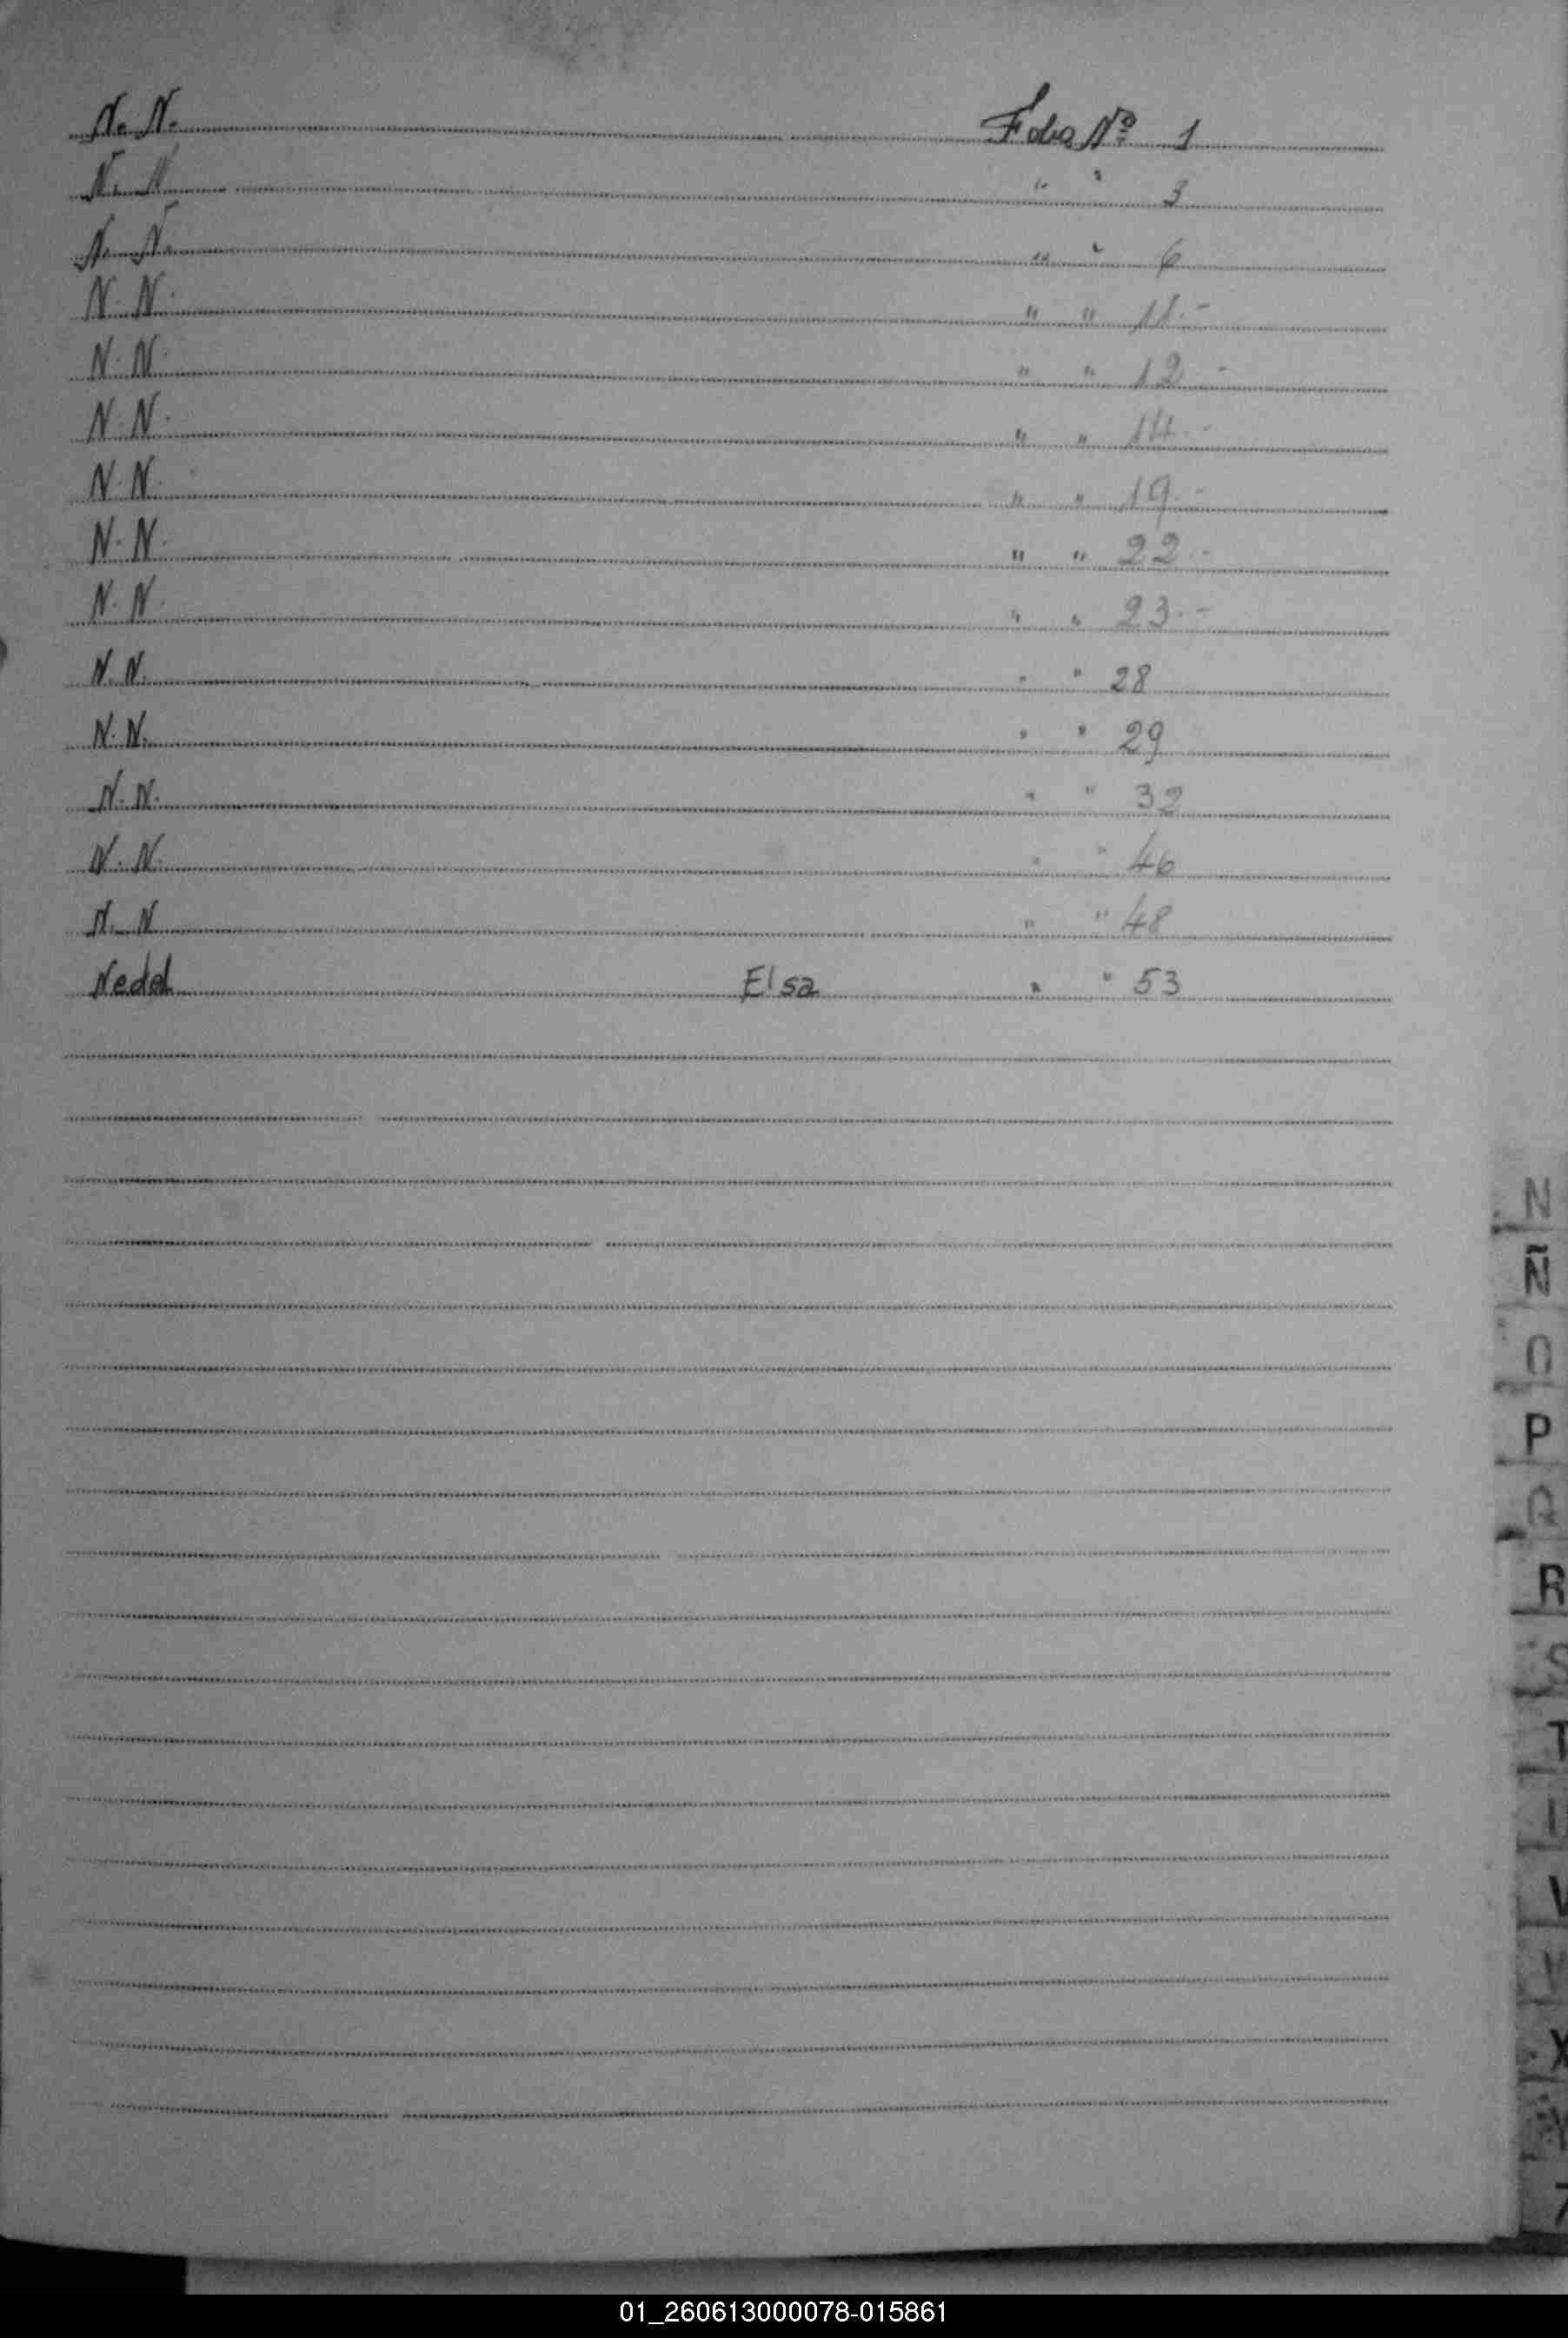 N. N. Folio Nº 1
N. N. " " 3
N. N. " " 6
N. N. " " 11.-
N. N. " " 12.-
N. N. " " 14.-
N. N. " " 19.-
N. N. " " 22.-
N. N. " " 23.-
N. N. " " 28
N. N. " " 29
N. N. " " 32
N. N. " " 46
N. N " " 48
Nedel Elsa " " 53
N
Ñ
O
P
Q
R
S
T
U
V
X
Y
Z
01_260613000078-015861